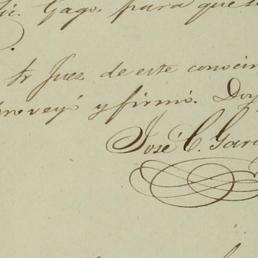 tic. Gago. para que s
tr Juez de este conocim
preveyó y firmó. Doy
José C. Garc